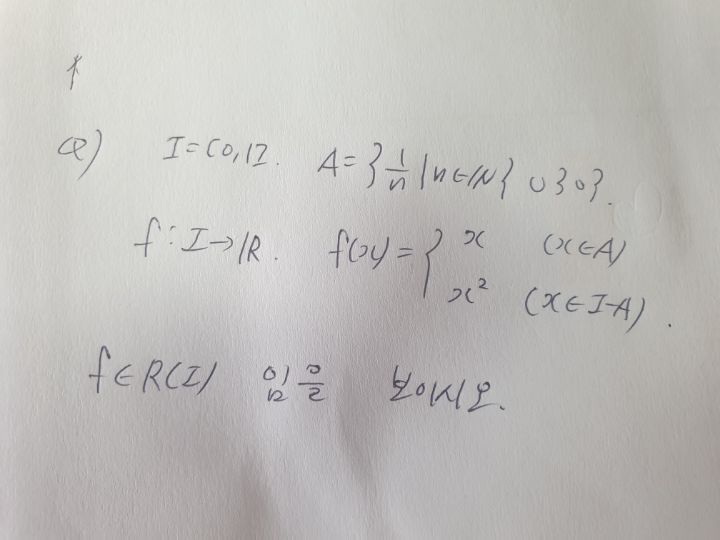 *
Q) I=[0,1]. A={1/n | n∈ℕ} ∪ {0}.
f: I→ℝ. f(x) = { x (x∈A)
x² (x∈I-A).
f∈R(I) 임을 보이시오.